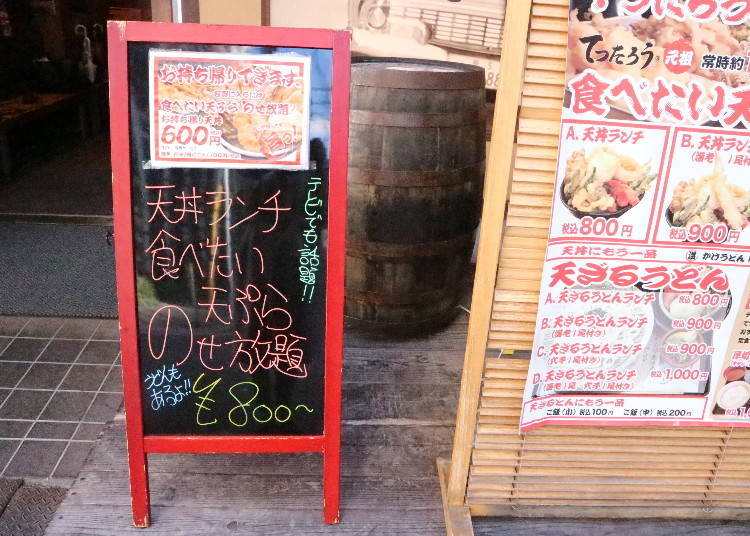 お持ち帰りできます。
食べたい天ぷらのせ放題
お持ち帰り天丼
600円
天丼ランチ
食べたい
天ぷら
のせ放題
¥800〜
テレビでも話題!!
うどんも
あるよ!!
てつたろう 元祖 常時約
食べたい天
A. 天丼ランチ
税込800円
B. 天丼ランチ
(海老1尾付)
税込900円
天丼にもう一品
かけうどん
天ざるうどん
A. 天ざるうどんランチ 税込800円
B. 天ざるうどんランチ 税込900円
(海老1尾付き)
C. 天ざるうどんランチ 税込900円
(穴子1尾付き)
D. 天ざるうどんランチ 税込1,000円
(海老1尾 穴子1尾付き)
天ざるうどんにもう一品
ご飯(小)税込100円 ご飯(中)税込200円